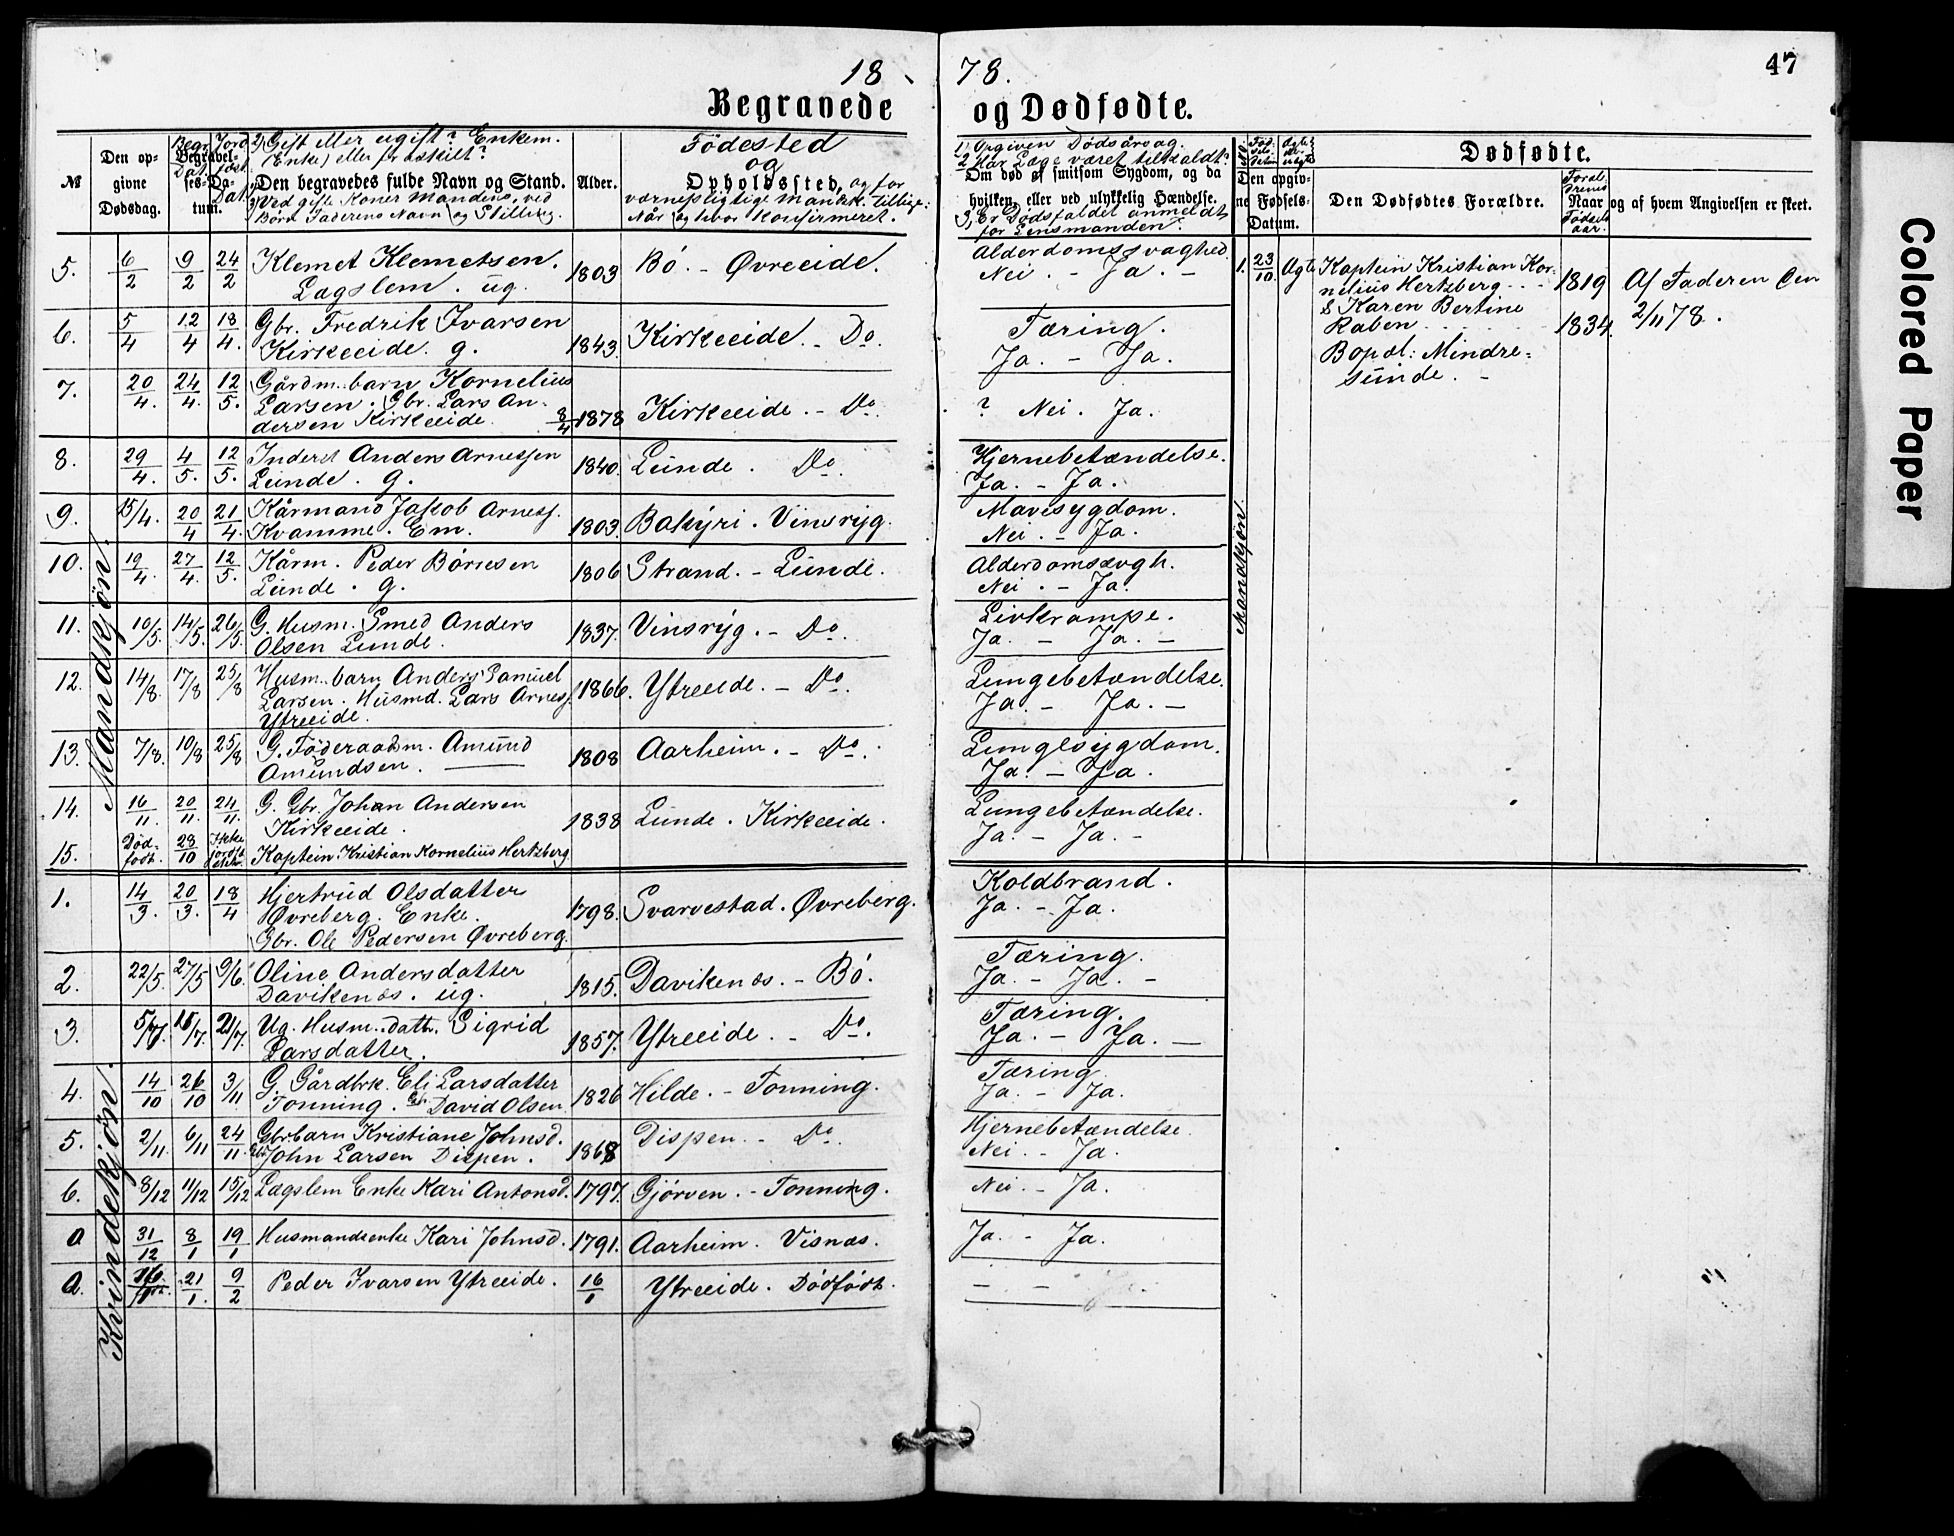 18 78.
47
Begravede og Dødfødte.
№
Den op-
givne
Dødsdag.
Begravel-
ses-Da-
tum.
2) Gift eller ugift? Enkem.
(Enke) eller fraskilt?
Den begravedes fulde Navn og Stand.
Ved gifte Koner Mandens, ved
Børn Faderens Navn og Stilling.
Alder.
Födested
og
Opholdssted, og for
værnepligtige mandk. tillige:
Når og hvor konfirmeret.
1, Opgiven Dødsårsag.
2 Har Læge været tilkaldt?
Om død af smitsom Sygdom, og da
hvilken, eller ved ulykkelig Hændelse.
3, Er Dødsfaldet anmeldt
for Lensmanden?
Dødfødte.
Den opgiv-
ne Fødsels-
Datum.
Den Dødfødtes Forældre.
Naar
og af hvem Angivelsen er skeet.
Mandkjøn.
5. 6/2 9/2 24/2 Klemet Klemetsen.
Lægslem. ug. 1803 Bö. - Øvreeide. Alderdomssvaghed
Nei. - Ja. -
6. 5/4 12/4 18/4. Gbr. Fredrik Ivarsen
Kirkeeide. g. 1843. Kirkeeide. - Do. Tæring.
Ja. - Ja.
7. 20/4. 24/4. 12/5. Gårdm. barn Kornelius
Larsen. Gbr. Lars An-
dersen Kirkeeide. 8/4 1878 Kirkeeide. - Do. ? Nei. Ja.
8. 29/4. 4/5. 12/5. Inderst Anders Arnessen
Lunde. g. 1840. Lunde. Do. Hjernebetændelse.
Ja. - Ja.
9. 15/4. 20/4 21/4. Kårmand Jakob Arness.
Kvamme. Em. 1803. Bahyri. Vinsryg. Mavesygdom.
Nei. - Ja.
10. 19/4. 27/4. 12/5. Kårm. Peder Börresen
Lunde. g. 1806 Strand. - Lunde. Alderdomssvgh.
Nei. - Ja.
11. 10/5. 14/5. 26/5. G. Husm. Smed Anders
Olsen Lunde. 1837. Vinsryg. - Do. Livkrampe.
Ja. - Ja. -
12. 14/8. 17/8 25/8 Husm. barn Anders Samuel
Larsen. Husmd. Lars Arness.
Ytreeide. 1866. Ytreeide. - Do. Lungebetændelse.
Ja. - Ja. -
13. 7/8. 10/8 25/8 G. Föderaadsm. Amund
Amundsen. 1808 Aarheim. - Do. Lungesygdom.
Ja. - Ja.
14. 16/11. 20/11. 24/11. G. Gbr. Johan Andersen
Kirkeeide. 1838 Lunde. Kirkeeide. Lungebetændelse.
Ja. - Ja. -
15. Död-
födt. 28/10 Ikke
Kaptein Kristian Kornelius Hertzberg
Mandkjøn.
1. 23/10. Ægte Kaptein Kristian Kor-
nelius Hertzberg 1819 Af Faderen den
& Karen Bertine
Raben 1834. 2/11 78.
Bopæl: Mindre-
sunde. -
Kvindekjön.
1. 14/3. 20/3. 18/4 Hjertrud Olsdatter
Øvreberg. Enke.
Gbr. Ole Pedersen Øvreberg. 1798. Svarvestad. Øvreberg. Koldbrand.
Ja. - Ja.
2. 22/5. 27/5 9/6. Oline Andersdatter
Davikenæs. ug. 1815. Davikenæs. - Bö. Tæring.
Ja. - Ja. -
3. 5/7. 15/7. 21/7. Ug. Husm. datt. Sigrid
Larsdatter. 1857. Ytreeide. - Do. Tæring.
Ja. - Ja. -
4. 14/10 26/10 3/11 G. Gårdbrk. Eli Larsdatter
Tonning. Gbr. David Olsen 1826 Hilde. - Tonning. Tæring.
Ja. - Ja.
5. 2/11. 6/11 24/11. Gbrbarn Kristiane Johnsd.
Gbr. John Larsen Dispen. 1868 Dispen. - Do. Hjernebetændelse.
Nei. - Ja.
6. 8/12 11/12 15/12 Lægslem Enke Kari Antonsd. 1797. Gjörven. - Tonning. Nei. - Ja.
a 31/12 8/1 19/1 Husmandsenke Kari Johnsd. 1791. Aarheim. Visnæs. Ja. - Ja.
a. 21/1. 9/2 Peder Ivarsen Ytreeide. 16/1 Ytreeide. Dödfödt. - -
Colored Paper